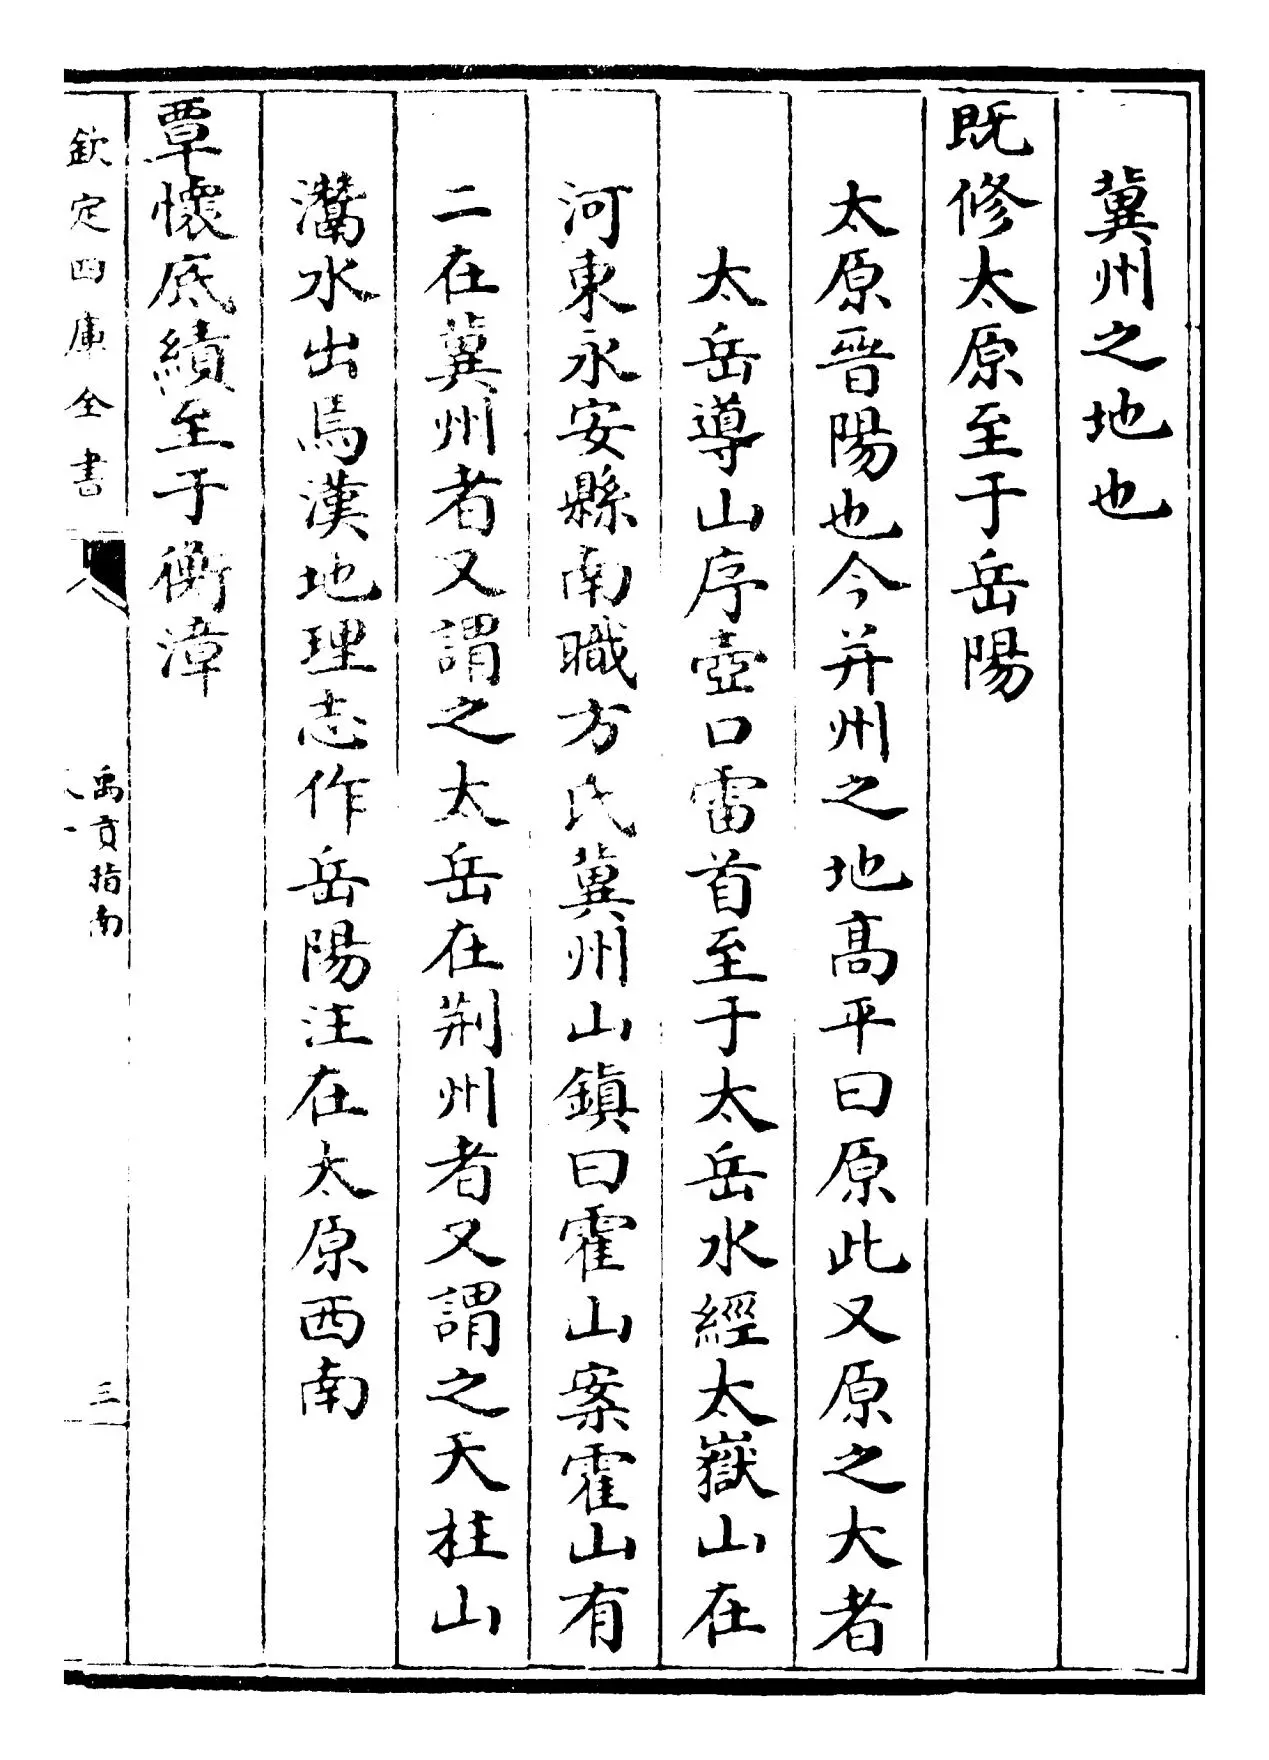 冀州之地也
既修太原至于岳陽
太原晉陽也今并州之地高平曰原此又原之大者
太岳導山序壺口雷首至于太岳水經太嶽山在
河東永安縣南職方氏冀州山鎮曰霍山案霍山有
二在冀州者又謂之太岳在荆州者又謂之天柱山
灊水出焉漢地理志作岳陽注在太原西南
覃懷底績至于衡漳
欽定四庫全書
禹貢指南
三